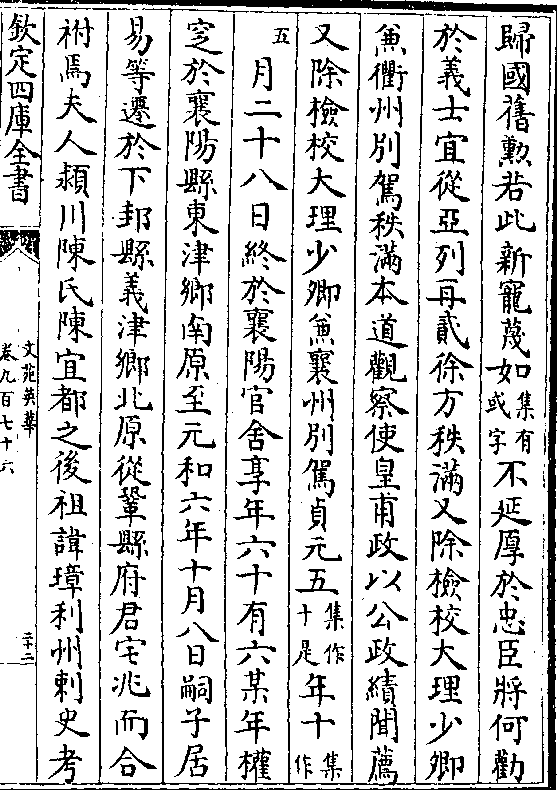 歸國舊勲若此新寵蔑如集有或字不延厚於忠臣將何勸
於義士宜從亞列再貳徐方秩滿又除檢校大理少卿
兼衢州別駕秩滿本道觀察使皇甫政以公政績聞薦
又除檢校大理少卿兼襄州別駕貞元五集作十是年十集作
五月二十八日終於襄陽官舍享年六十有六某年權
窆於襄陽縣東津鄉南原至元和六年十月八日嗣子居
易等遷於下邽縣義津鄉北原從鞏縣府君宅兆而合
祔焉夫人頴川陳氏陳宜都之後祖諱璋利州刺史考
欽定四庫全書
文苑英華
卷九百七十六
二十二